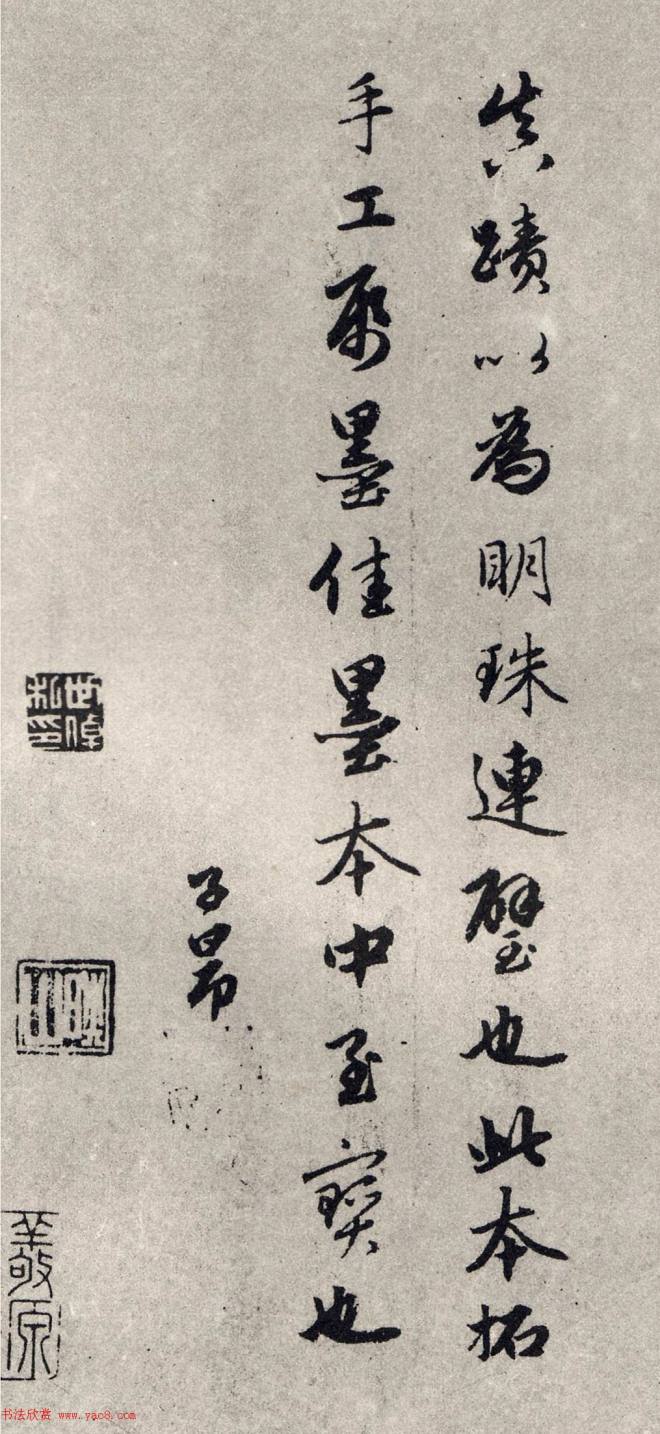 真蹟以為明珠連璧也此本拓
手工紙墨佳墨本中至寶也
子昂
書法欣赏 www.yac8.com